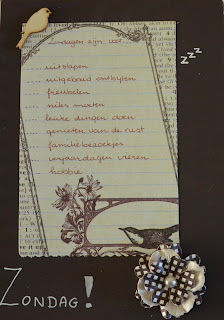 Zondagen zijn voor:
.... uitslapen
.... uitgebreid ontbijten
.... freubelen
.... niks moeten
.... leuke dingen doen
.... genieten van de rust
.... familiebezoekjes
.... verjaardagen vieren
.... hobbie
zzz
ZONDAG!